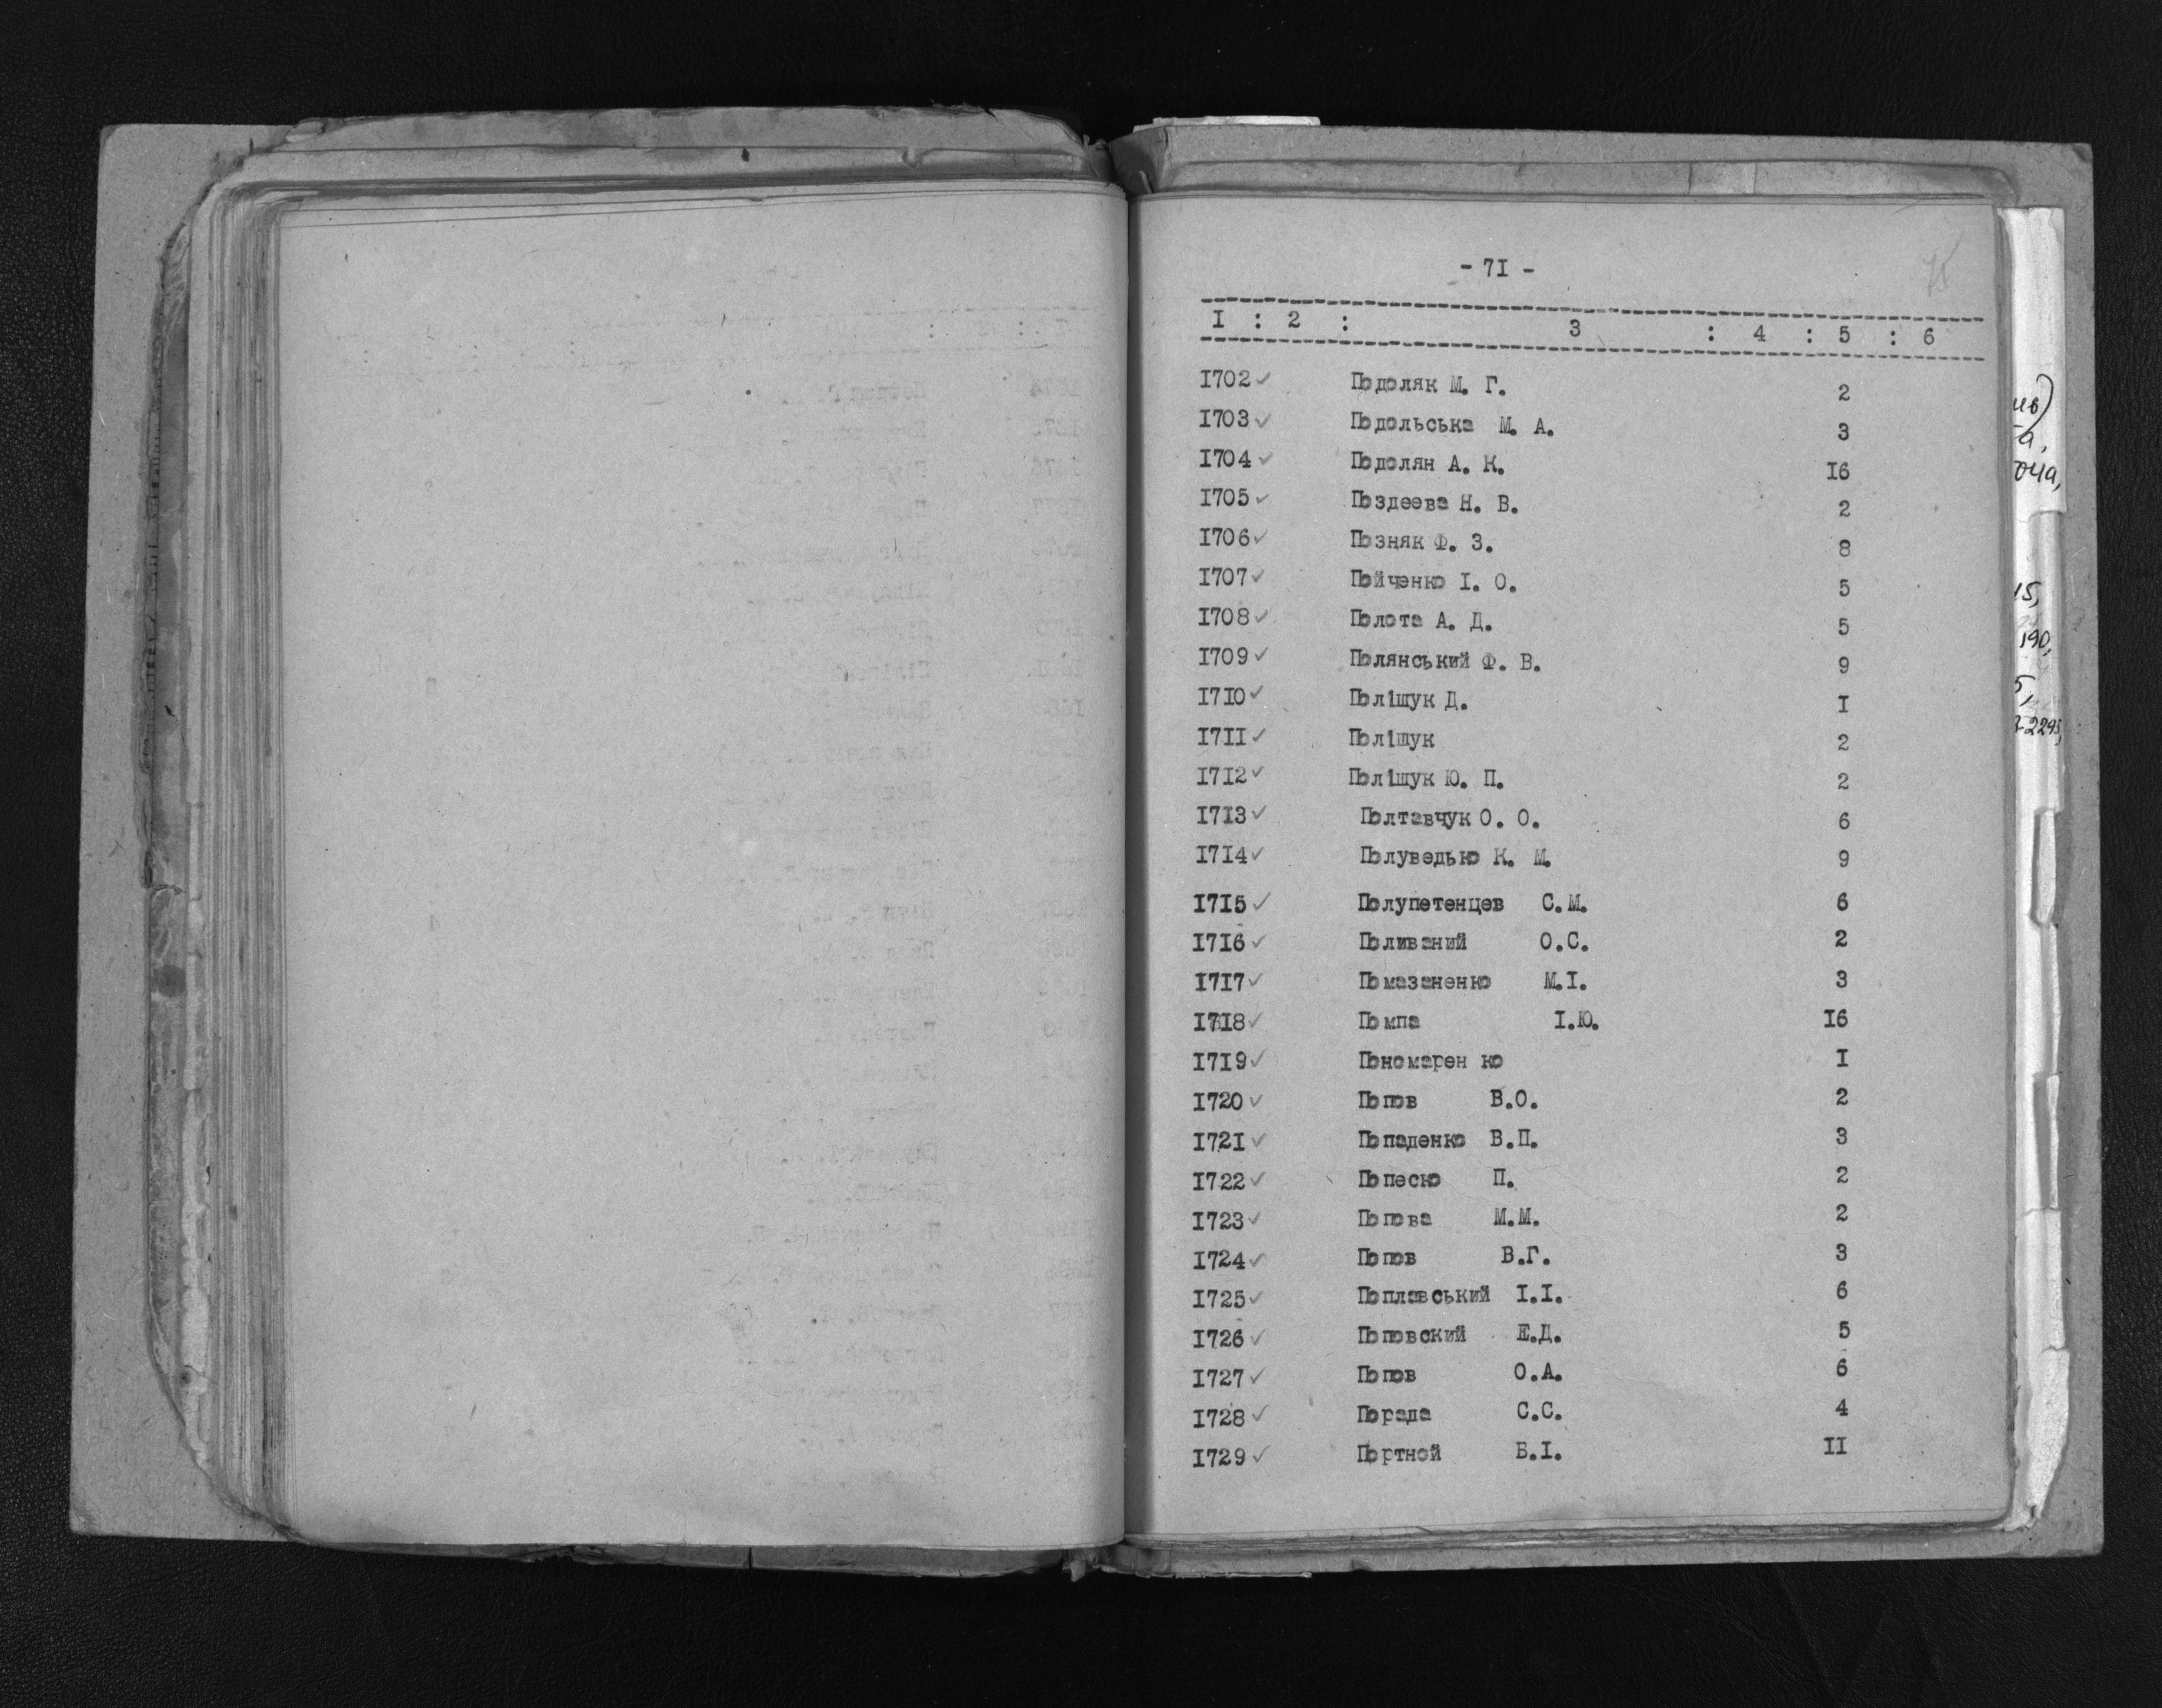 - 7I -
75
I : 2 : 3 : 4 : 5 : 6
I702 ✓ Подоляк М. Г. 2
I703 ✓ Подольська М. А. 3
I704 ✓ Подолян А. К. I6
I705 ✓ Поздеева Н. В. 2
I706 ✓ Позняк Ф. З. 8
I707 ✓ Пойченко І. О. 5
I708 ✓ Полота А. Д. 5
I709 ✓ Полянський Ф. В. 9
I7I0 ✓ Поліщук Д. I
I7II ✓ Поліщук 2
I7I2 ✓ Поліщук Ю. П. 2
I7I3 ✓ Полтавчук О. О. 6
I7I4 ✓ Полуведько К. М. 9
I7I5 ✓ Полупетенцев С.М. 6
I7I6 ✓ Поливаний О.С. 2
I7I7 ✓ Помазаненко М.І. 3
I7I8 ✓ Помпа І.Ю. I6
I7I9 ✓ Пономарен ко I
I720 ✓ Попов В.О. 2
I72I ✓ Попаденко В.П. 3
I722 ✓ Попеско П. 2
I723 ✓ Попова М.М. 2
I724 ✓ Попов В.Г. 3
I725 ✓ Поплавський І.І. 6
I726 ✓ Поповский Е.Д. 5
I727 ✓ Попов О.А. 6
I728 ✓ Порада С.С. 4
I729 ✓ Портной Б.І. II
190,
2295,